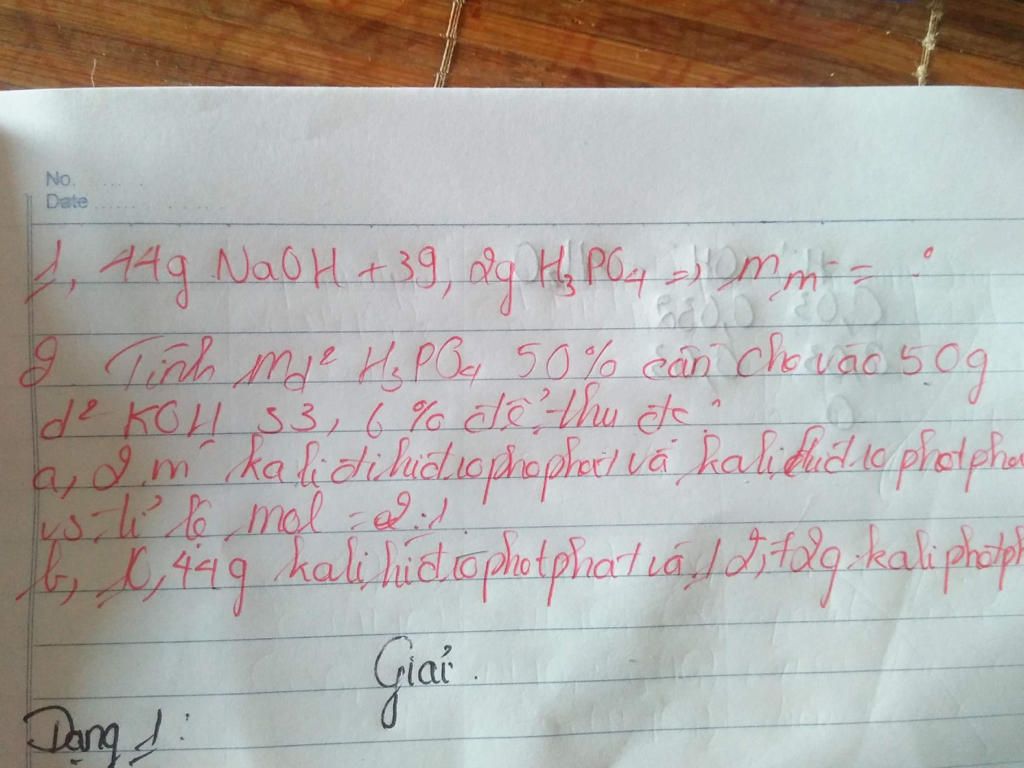 No.
Date
1, 44g NaOH + 39,2g H3PO4 => m m' = ?
2 Tính md² H3PO4 50% cần cho vào 50g
d² KOH 33,6% để thu đc
a, 2 m' kali đihiđrophophat và kali hiđrophotpha
vs tỉ lệ mol = 2:1
b, 10,44g kali hiđrophotphat và 12,72g kali photph
Giải.
Dạng 1: